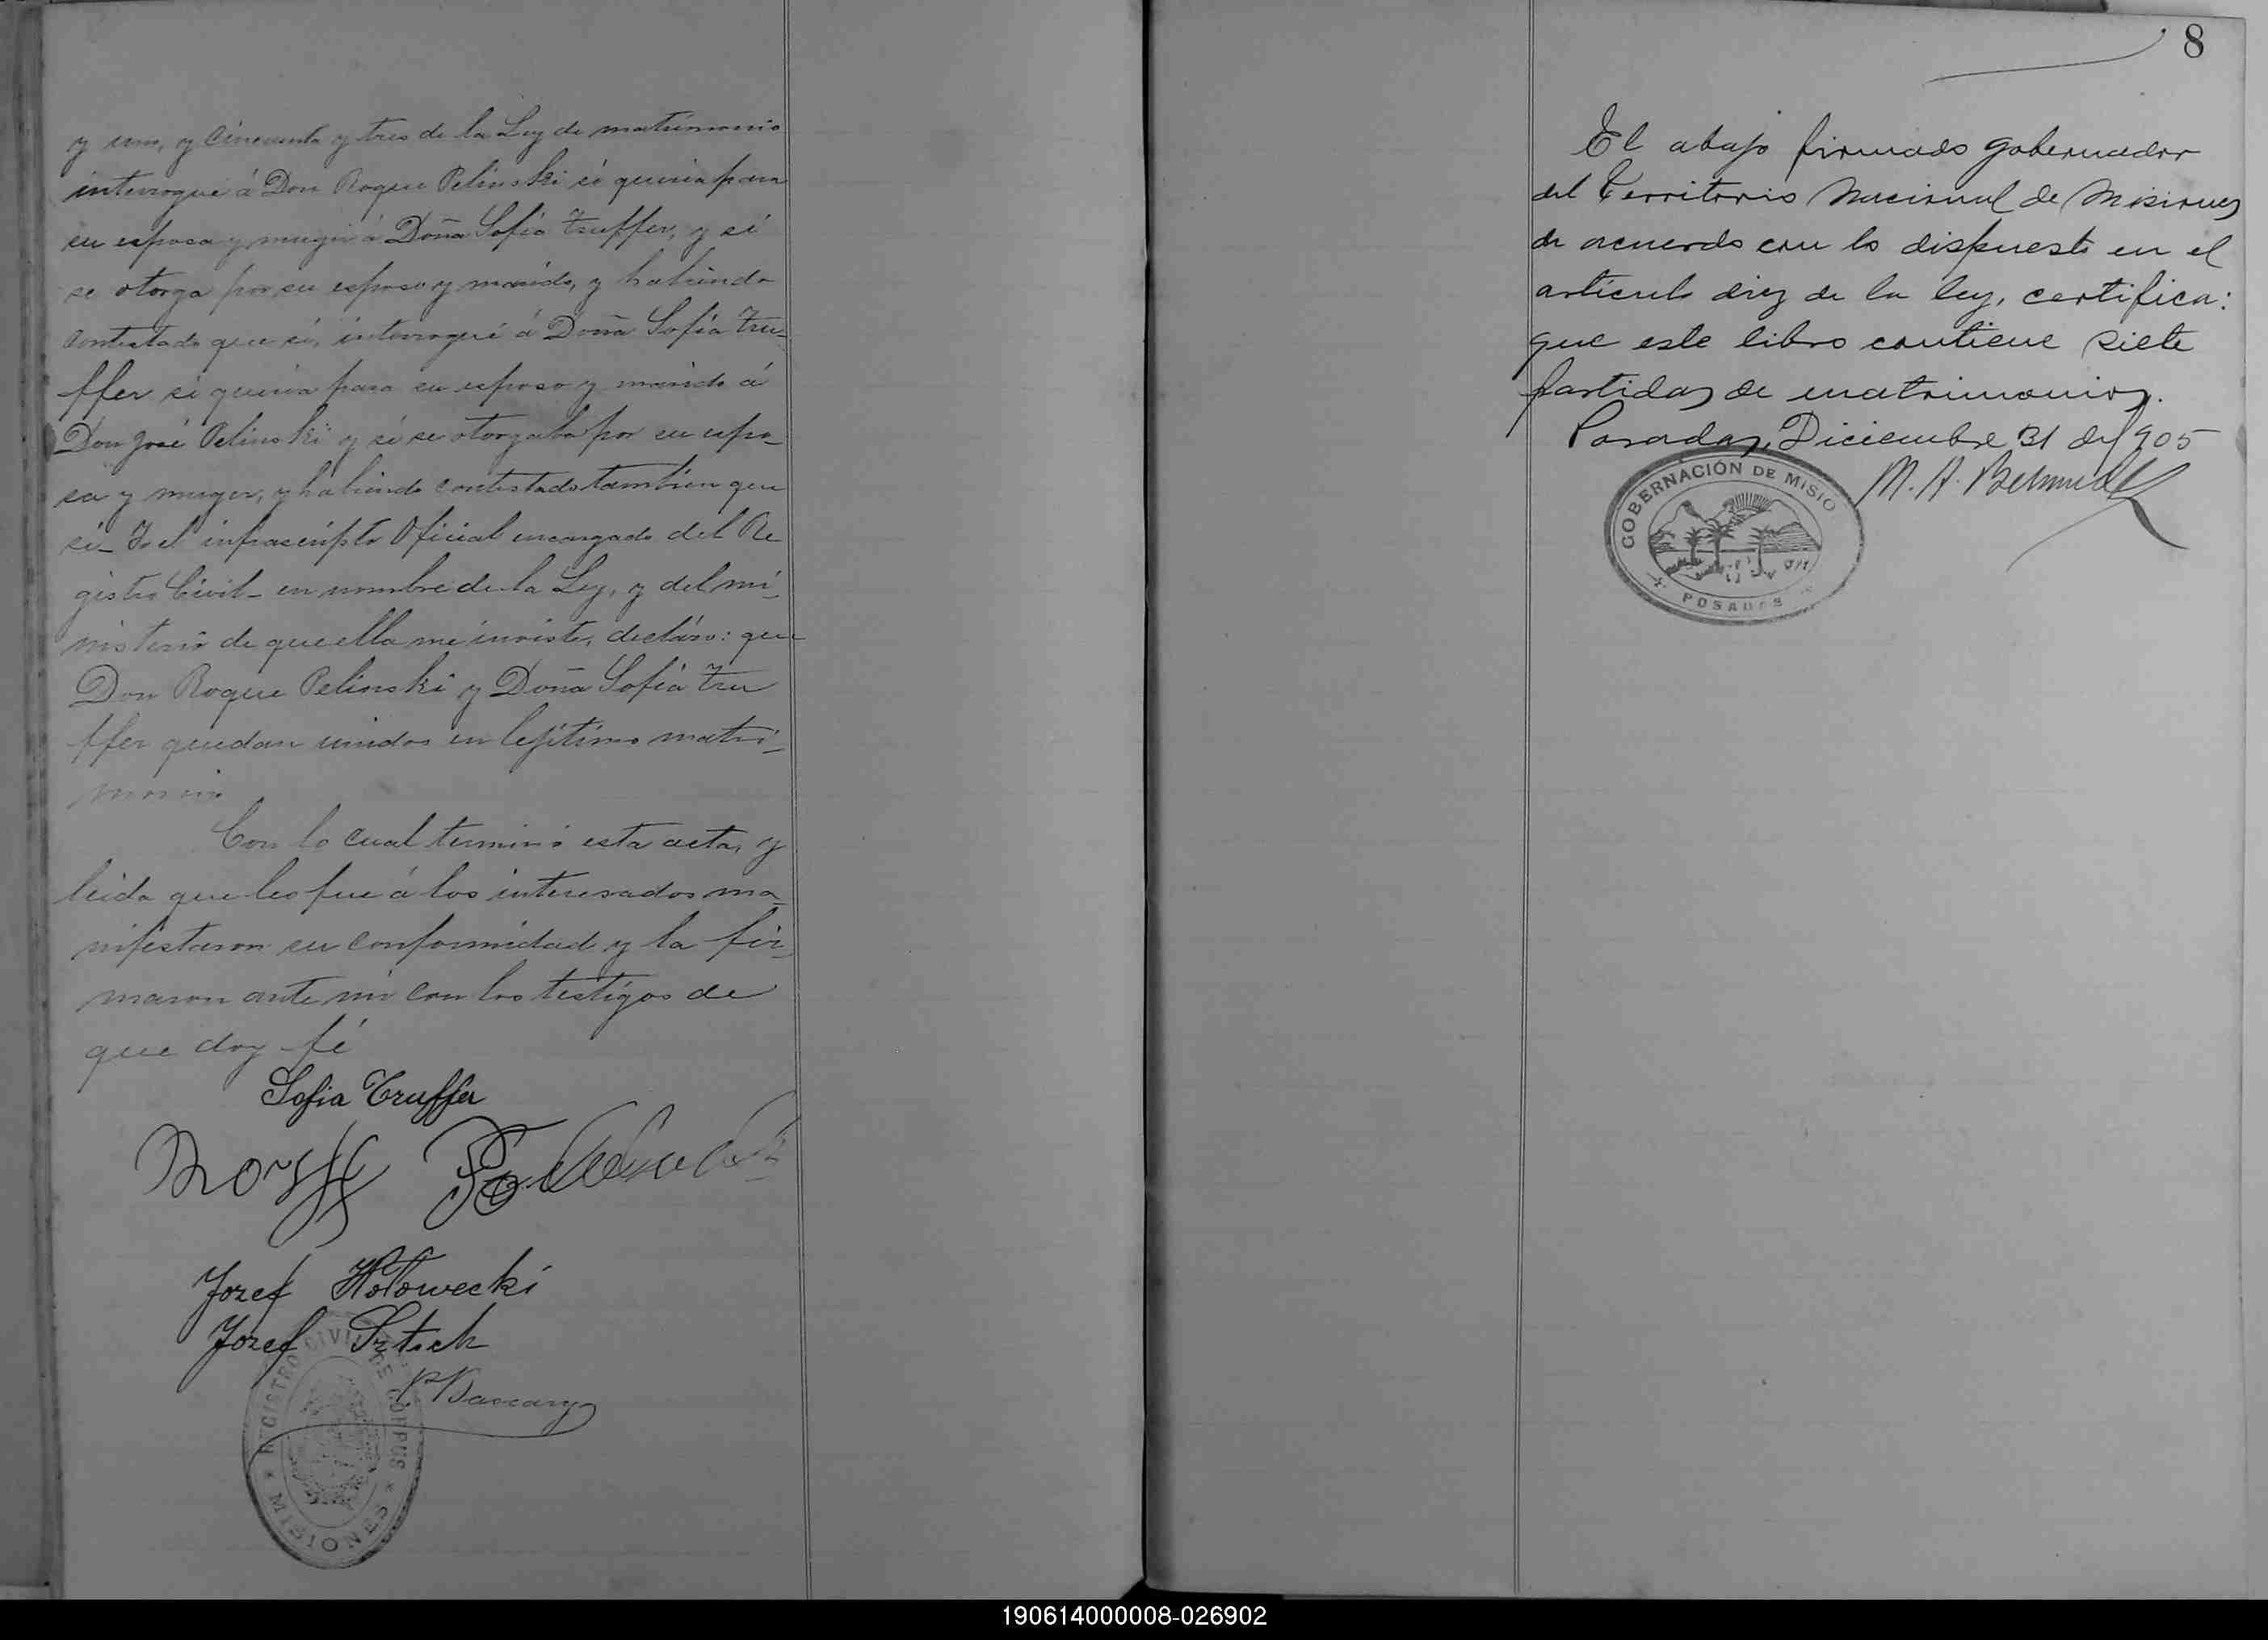 y uno, y Cincuenta y tres de la Ley de matrimonio
interrogué á Don Roque Pelinski si queria para
su esposa y muger á Doña Sofía Truffer, y si
se otorga por su esposo y marido, y habiendo
contestado que si, interrogué á Doña Sofía Tru-
ffer si queria para su esposo y marido á
Don José Pelinski y si se otorgaba por su espo-
sa y muger, y habiendo contestado tambien que
si- Yo el infrascripto Oficial encargado del Re
gistro Civil- en nombre de la Ley, y del mi-
nisterio de que ella me inviste, decláro: que
Don Roque Pelinski y Doña Sofía Tru
ffer quedan unidos en lejítimo matri-
monio
Con lo cual terminó esta acta, y
leida que les fue á los interesados ma-
nifestaron su conformidad y la fir-
maron ante mi con los testigos de
que doy fé
Sofia Truffer
Jozef Hołowecki
Jozef
P Bascary
REGISTRO CIVIL DE CORPUS
* MISIONES *
8
El abajo firmado gobernador
del Territorio Nacional de Misiones
de acuerdo con lo dispuesto en el
artículo diez de la ley, certifica:
que este libro contiene siete
partidas de matrimonios.
Posadas, Diciembre 31 de 1905
M. A.
GOBERNACIÓN DE MISIO
POSADAS
190614000008-026902